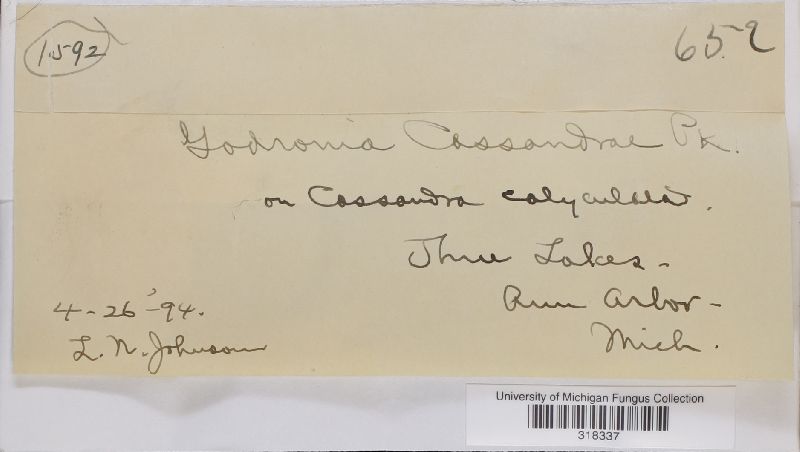 1592
652
Godronia Cassandrae Pk.
on Cassandra calyculata.
Three Lakes -
Ann Arbor -
Mich.
4-26-'94.
L. N. Johnson
University of Michigan Fungus Collection
318337